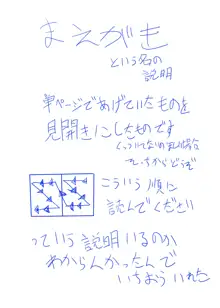 まえがき
という名の
説明
単ページであげていたものを
見開きにしたものです
くっついてないのがいい場合
こういう順に
読んでください
っていう説明いるのか
わからんかったんで
いちおういれた